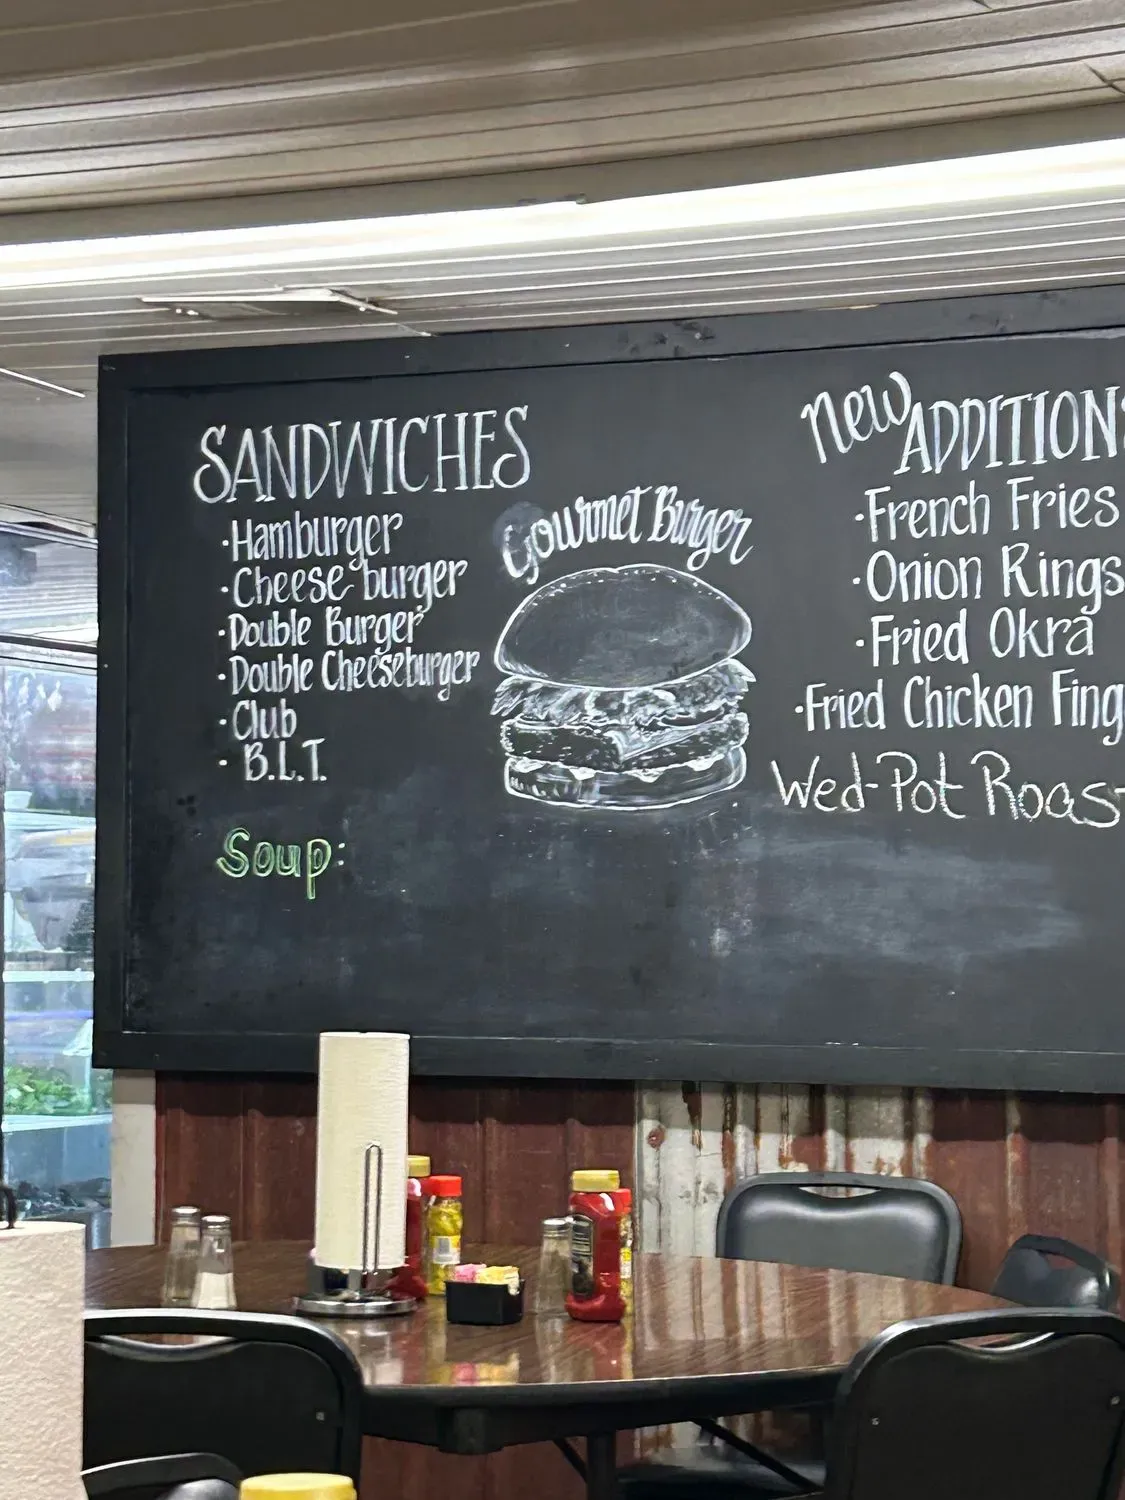 SANDWICHES
·Hamburger
·Cheese burger
·Double Burger
·Double Cheeseburger
·Club
· B.L.T.
Soup:
Gourmet Burger
New ADDITIONS
·French Fries
·Onion Rings
·Fried Okra
·Fried Chicken Fing
Wed-Pot Roast